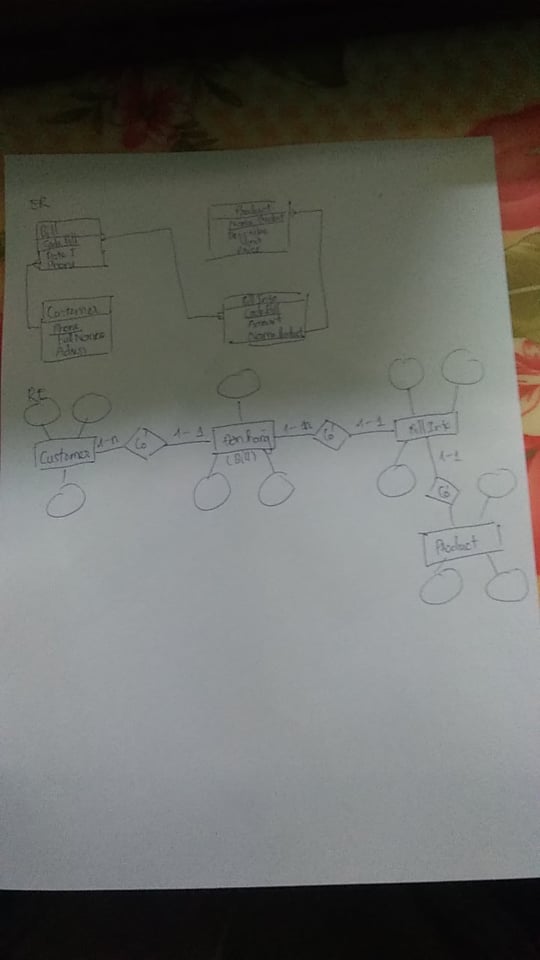 ER
Bill
Code Bill
Date
Phone
Product
Name Product
Unit
Price
Customer
Phone
Full Names
Adress
Bill Info
Code Bill
Amount
Name Product
RE
Customer
1-n
Có
1-1
Đơn hàng
(Bill)
1-n
Có
1-1
Bill Info
1-1
Có
Product